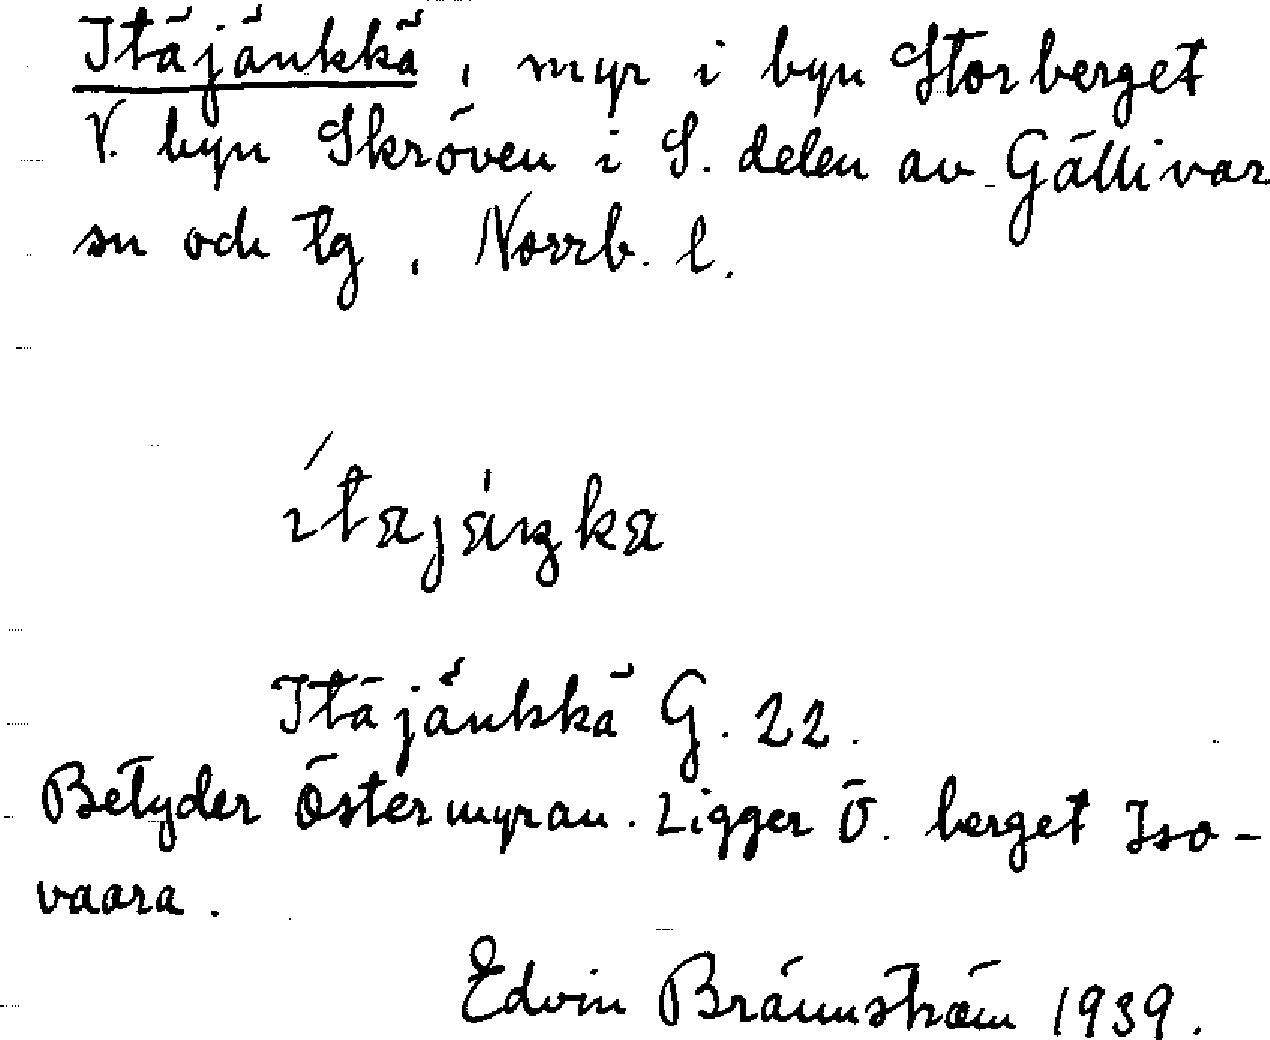 Itäjänkkä, myr i byn Storberget
V. byn Skröven i S. delen av Gällivar
sn och tg, Norrb. l.
Itäjänkkä G. 22.
Betyder Östermyran. Ligger Ö. berget Iso-
vaara.
Edvin Brännström 1939.